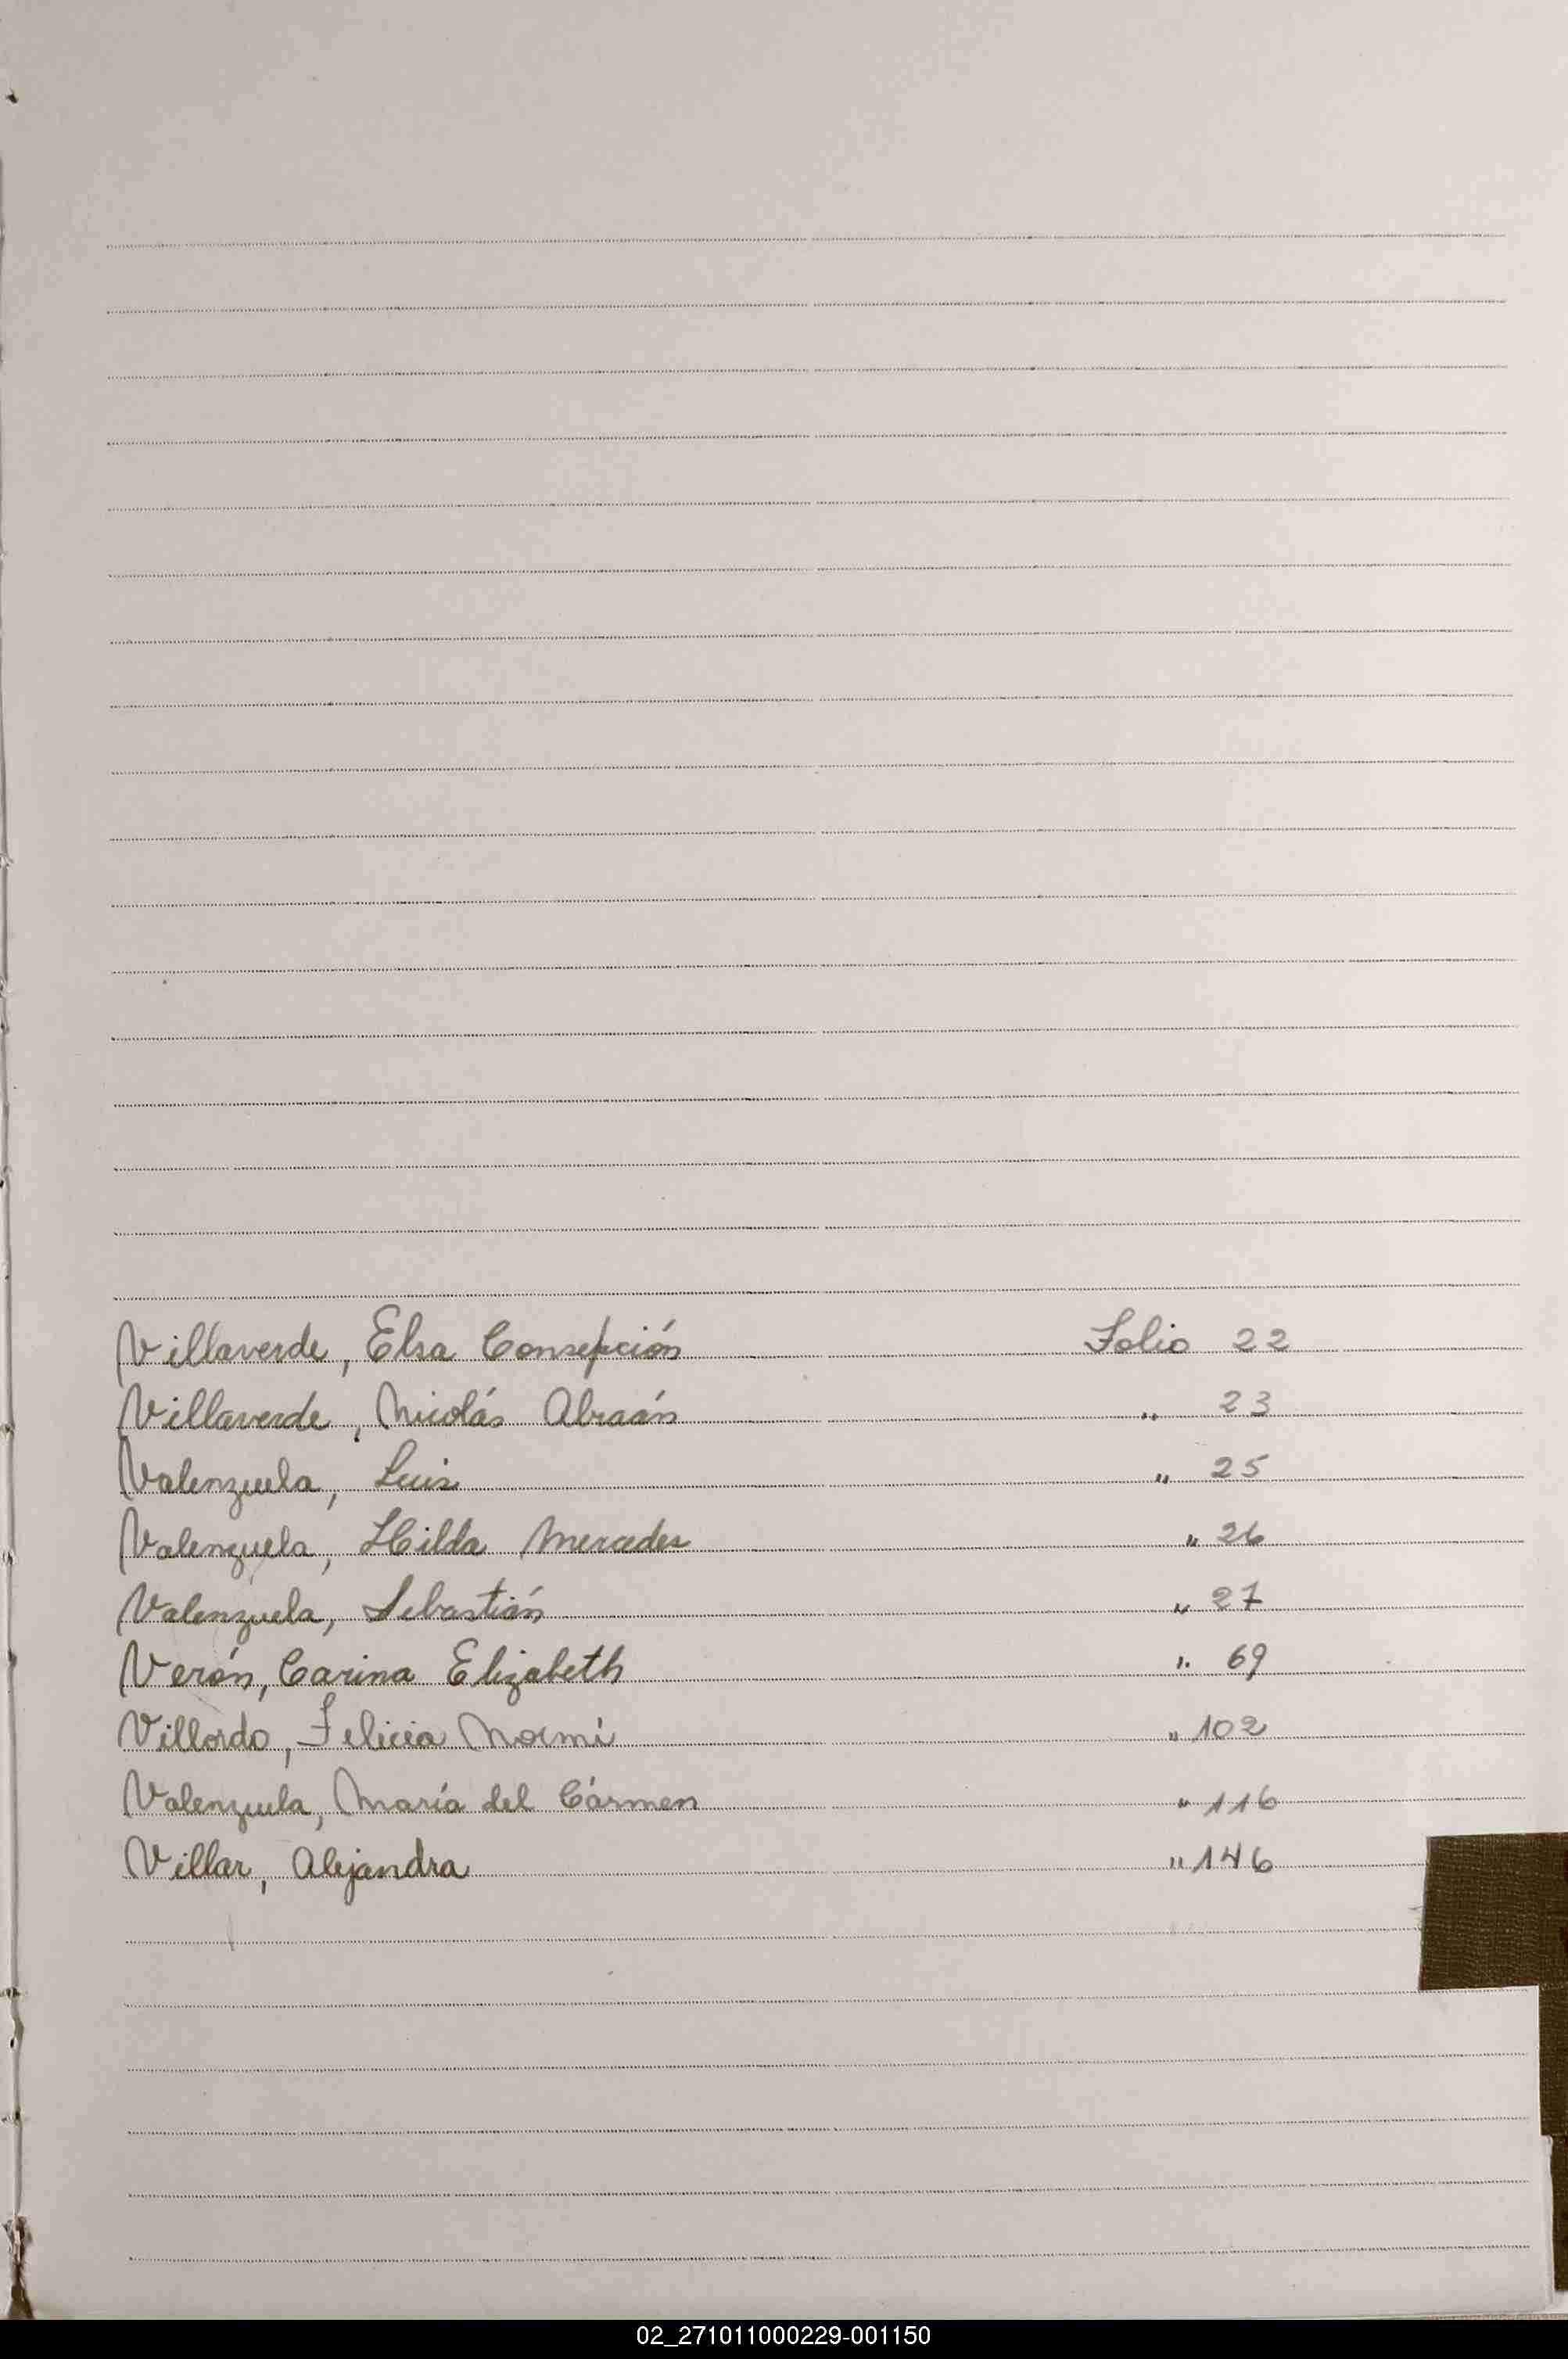 Villaverde, Elsa Consepción Folio 22
Villaverde, Nicolás Abraán " 23
Valenzuela, Luis " 25
Valenzuela, Hilda Mercedes " 26
Valenzuela, Sebastián " 27
Verón, Carina Elizabeth " 69
Villordo, Felicia Noemí " 102
Valenzuela, María del Cármen " 116
Villar, Alejandra " 146
02_271011000229-001150